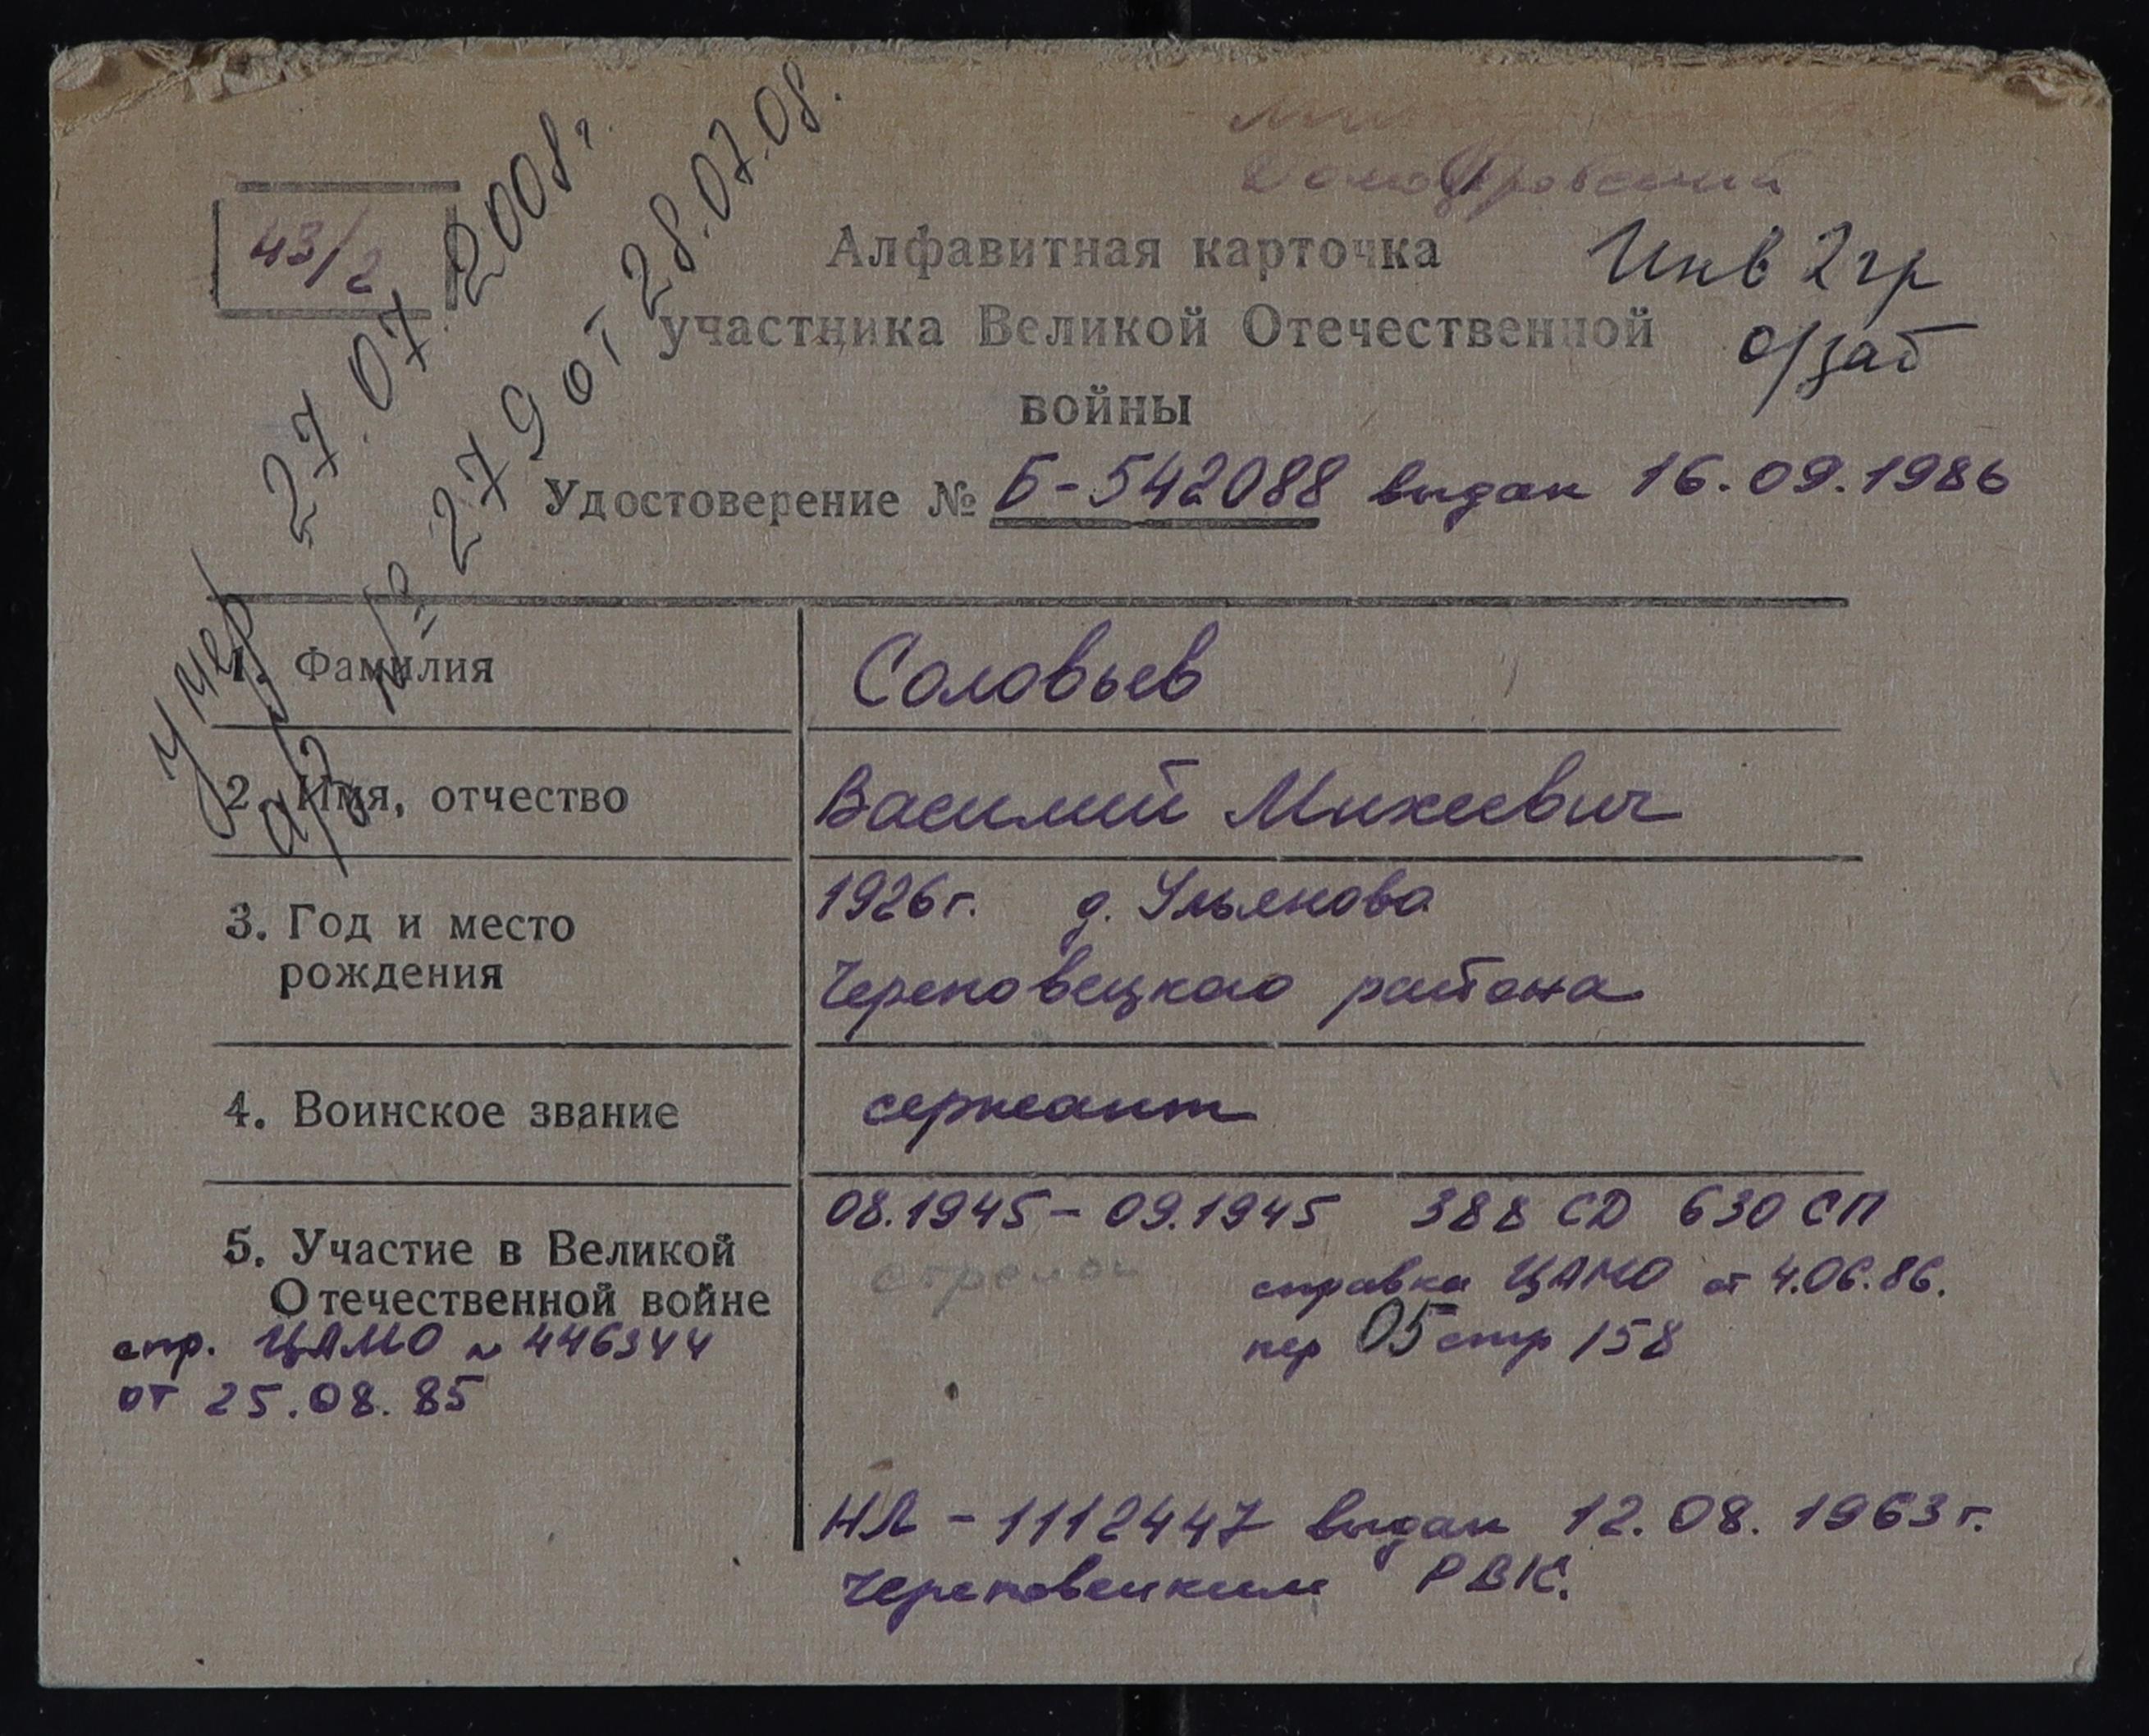 43/2
умер 27.07.2008г.
а/з № 279 от 28.07.08.
Алфавитная карточка
участника Великой Отечественной
войны
Инв 2гр
о/заб
Удостоверение № Б-542088 выдан 16.09.1986
1. Фамилия
Соловьев
2. Имя, отчество
Василий Михеевич
3. Год и место
рождения
1926г. д. Ульянова
Череповецкого района
4. Воинское звание
сержант
5. Участие в Великой
Отечественной войне
спр. ЦАМО № 446344
от 25.08.85
08.1945 - 09.1945 388 СД 630 СП
стрелок
справка ЦАМО от 4.06.86.
пер 05 стр 158
НЛ - 1112447 выдан 12.08.1963г.
Череповецким РВК.